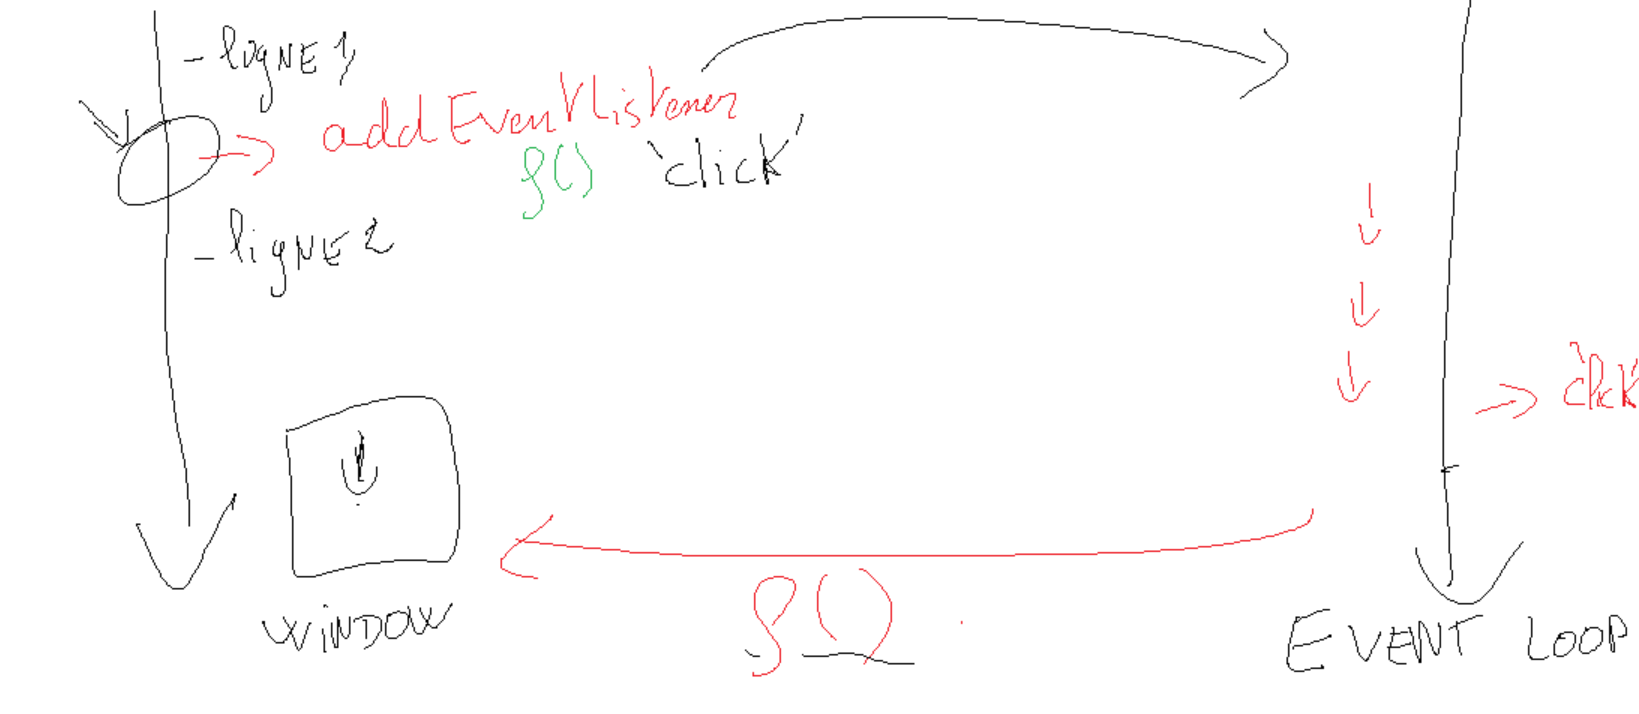 - ligNE 1
addEventListener
f() 'click'
- ligNE 2
'click'
f()
WINDOW
EVENT LOOP